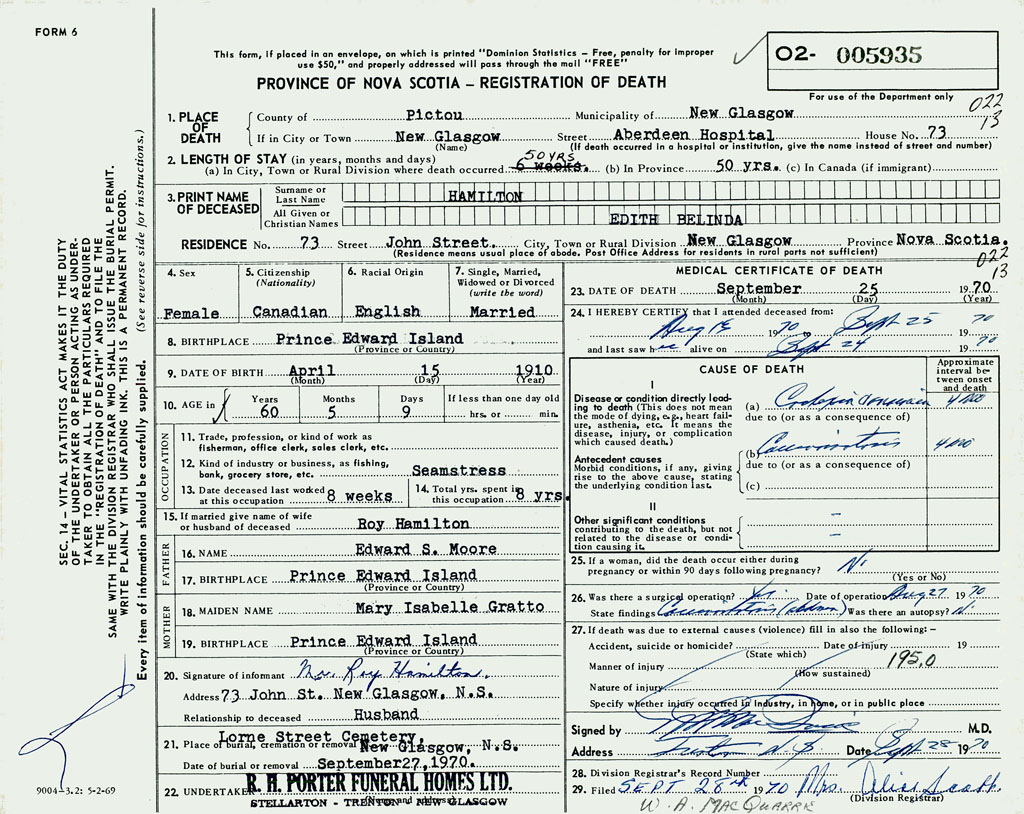 FORM 6
This form, if placed in an envelope, on which is printed "Dominion Statistics – Free, penalty for improper
use $50," and properly addressed will pass through the mail "FREE"
PROVINCE OF NOVA SCOTIA – REGISTRATION OF DEATH
02- 005935
For use of the Department only
022
13
1. PLACE OF DEATH
County of Pictou Municipality of New Glasgow
If in City or Town New Glasgow Street Aberdeen Hospital House No. 73
(Name) (If death occurred in a hospital or institution, give the name instead of street and number)
2. LENGTH OF STAY (in years, months and days)
50 YRS
(a) In City, Town or Rural Division where death occurred 6 weeks. (b) In Province 50 yrs. (c) In Canada (if immigrant)
3. PRINT NAME OF DECEASED
Surname or Last Name HAMILTON
All Given or Christian Names EDITH BELINDA
RESIDENCE No. 73 Street John Street. City, Town or Rural Division New Glasgow Province Nova Scotia.
(Residence means usual place of abode. Post Office Address for residents in rural parts not sufficient)
022
13
4. Sex
Female
5. Citizenship
(Nationality)
Canadian
6. Racial Origin
English
7. Single, Married,
Widowed or Divorced
(write the word)
Married
8. BIRTHPLACE Prince Edward Island
(Province or Country)
9. DATE OF BIRTH April 15 1910
(Month) (Day) (Year)
10. AGE in
Years Months Days If less than one day old
60 5 9 hrs. or min.
OCCUPATION
11. Trade, profession, or kind of work as
fisherman, office clerk, sales clerk, etc.
12. Kind of industry or business, as fishing,
bank, grocery store, etc. Seamstress
13. Date deceased last worked
at this occupation 8 weeks
14. Total yrs. spent in
this occupation 8 yrs.
15. If married give name of wife
or husband of deceased Roy Hamilton
FATHER
16. NAME Edward S. Moore
17. BIRTHPLACE Prince Edward Island
(Province or Country)
MOTHER
18. MAIDEN NAME Mary Isabelle Gratto
19. BIRTHPLACE Prince Edward Island
(Province or Country)
20. Signature of informant Mr. Roy Hamilton.
Address 73 John St. New Glasgow, N.S.
Relationship to deceased Husband
Lorne Street Cemetery,
21. Place of burial, cremation or removal New Glasgow, N.S.
Date of burial or removal September27,1970.
22. UNDERTAKER R. H. PORTER FUNERAL HOMES LTD.
(Name and address)
STELLARTON - TRENTON - NEW GLASGOW
MEDICAL CERTIFICATE OF DEATH
23. DATE OF DEATH September 25 1970
(Month) (Day) (Year)
24. I HEREBY CERTIFY that I attended deceased from:
Aug 1970 Sept 25 1970
and last saw h alive on Sept 24 1970
CAUSE OF DEATH
Approximate
interval be-
tween onset
and death
I
Disease or condition directly lead-
ing to death (This does not mean
the mode of dying, e.g., heart fail-
ure, asthenia, etc. It means the
disease, injury, or complication
which caused death.)
(a) 4 mo
due to (or as a consequence of)
Antecedent causes
Morbid conditions, if any, giving
rise to the above cause, stating
the underlying condition last.
(b) Carcinomatosis 4 mo
due to (or as a consequence of)
(c)
II
Other significant conditions
contributing to the death, but not
related to the disease or condi-
tion causing it.
–
–
25. If a woman, did the death occur either during
pregnancy or within 90 days following pregnancy? No
(Yes or No)
26. Was there a surgical operation? Yes Date of operation Aug 27 1970
State findings Carcinomatosis (abdomen) Was there an autopsy? No
27. If death was due to external causes (violence) fill in also the following: –
Accident, suicide or homicide? Date of injury 19
(State which)
195.0
Manner of injury
(How sustained)
Nature of injury
Specify whether injury occurred in Industry, in home, or in public place
Signed by M.D.
Address Trenton N.S. Date Sept 28 1970
28. Division Registrar's Record Number
29. Filed SEPT 28th 1970 Mrs. Alice Scott.
(Division Registrar)
W. A. MACQUARRIE
SEC. 14 – VITAL STATISTICS ACT MAKES IT THE DUTY
OF THE UNDERTAKER OR PERSON ACTING AS UNDER-
TAKER TO OBTAIN ALL THE PARTICULARS REQUIRED
IN THE "REGISTRATION OF DEATH" AND TO FILE THE
SAME WITH THE DIVISION REGISTRAR WHO SHALL ISSUE THE BURIAL PERMIT.
WRITE PLAINLY WITH UNFADING INK. THIS IS A PERMANENT RECORD.
Every item of information should be carefully supplied. (See reverse side for instructions.)
9004-3.2: 5-2-69